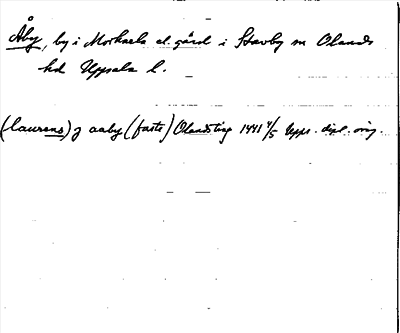 Åby, by i Morkarla el. gård i Stavby sn Olands
hd Uppsala l.
(laurens) j aaby (faste) Olandsting 1441 4/5 Upps. dipl. orig.